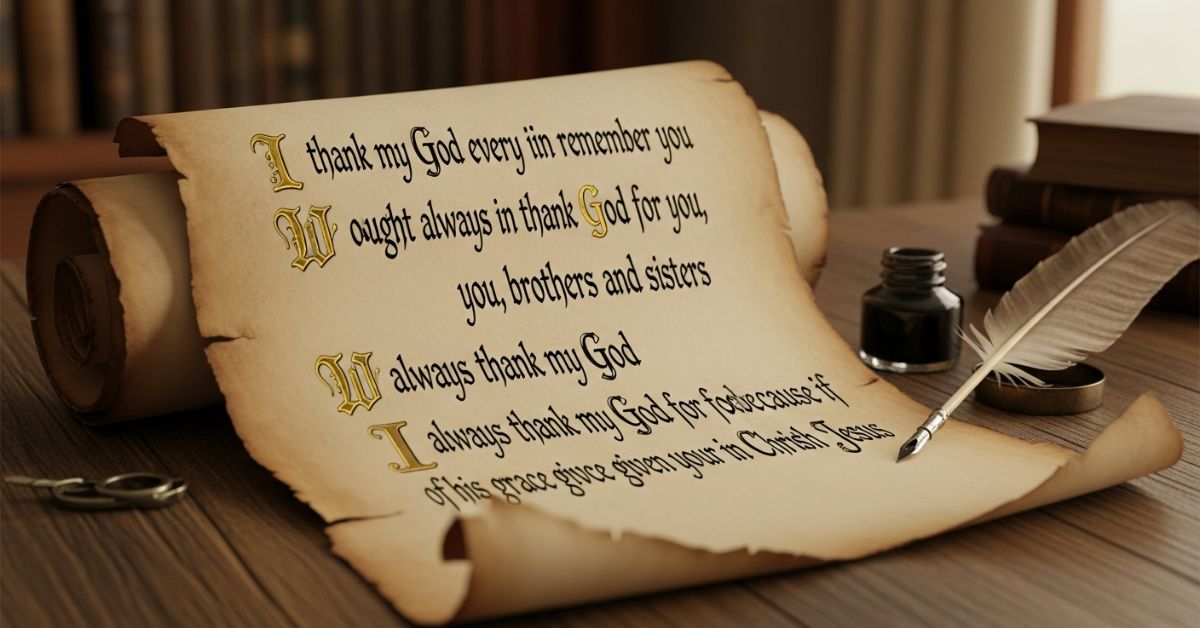 I thank my God every iin remember you
W ought always in thank God for you,
you, brothers and sisters
W always thank my God
I always thank my God for fosbecause if
of his grace givce given your in Chrish Jesus